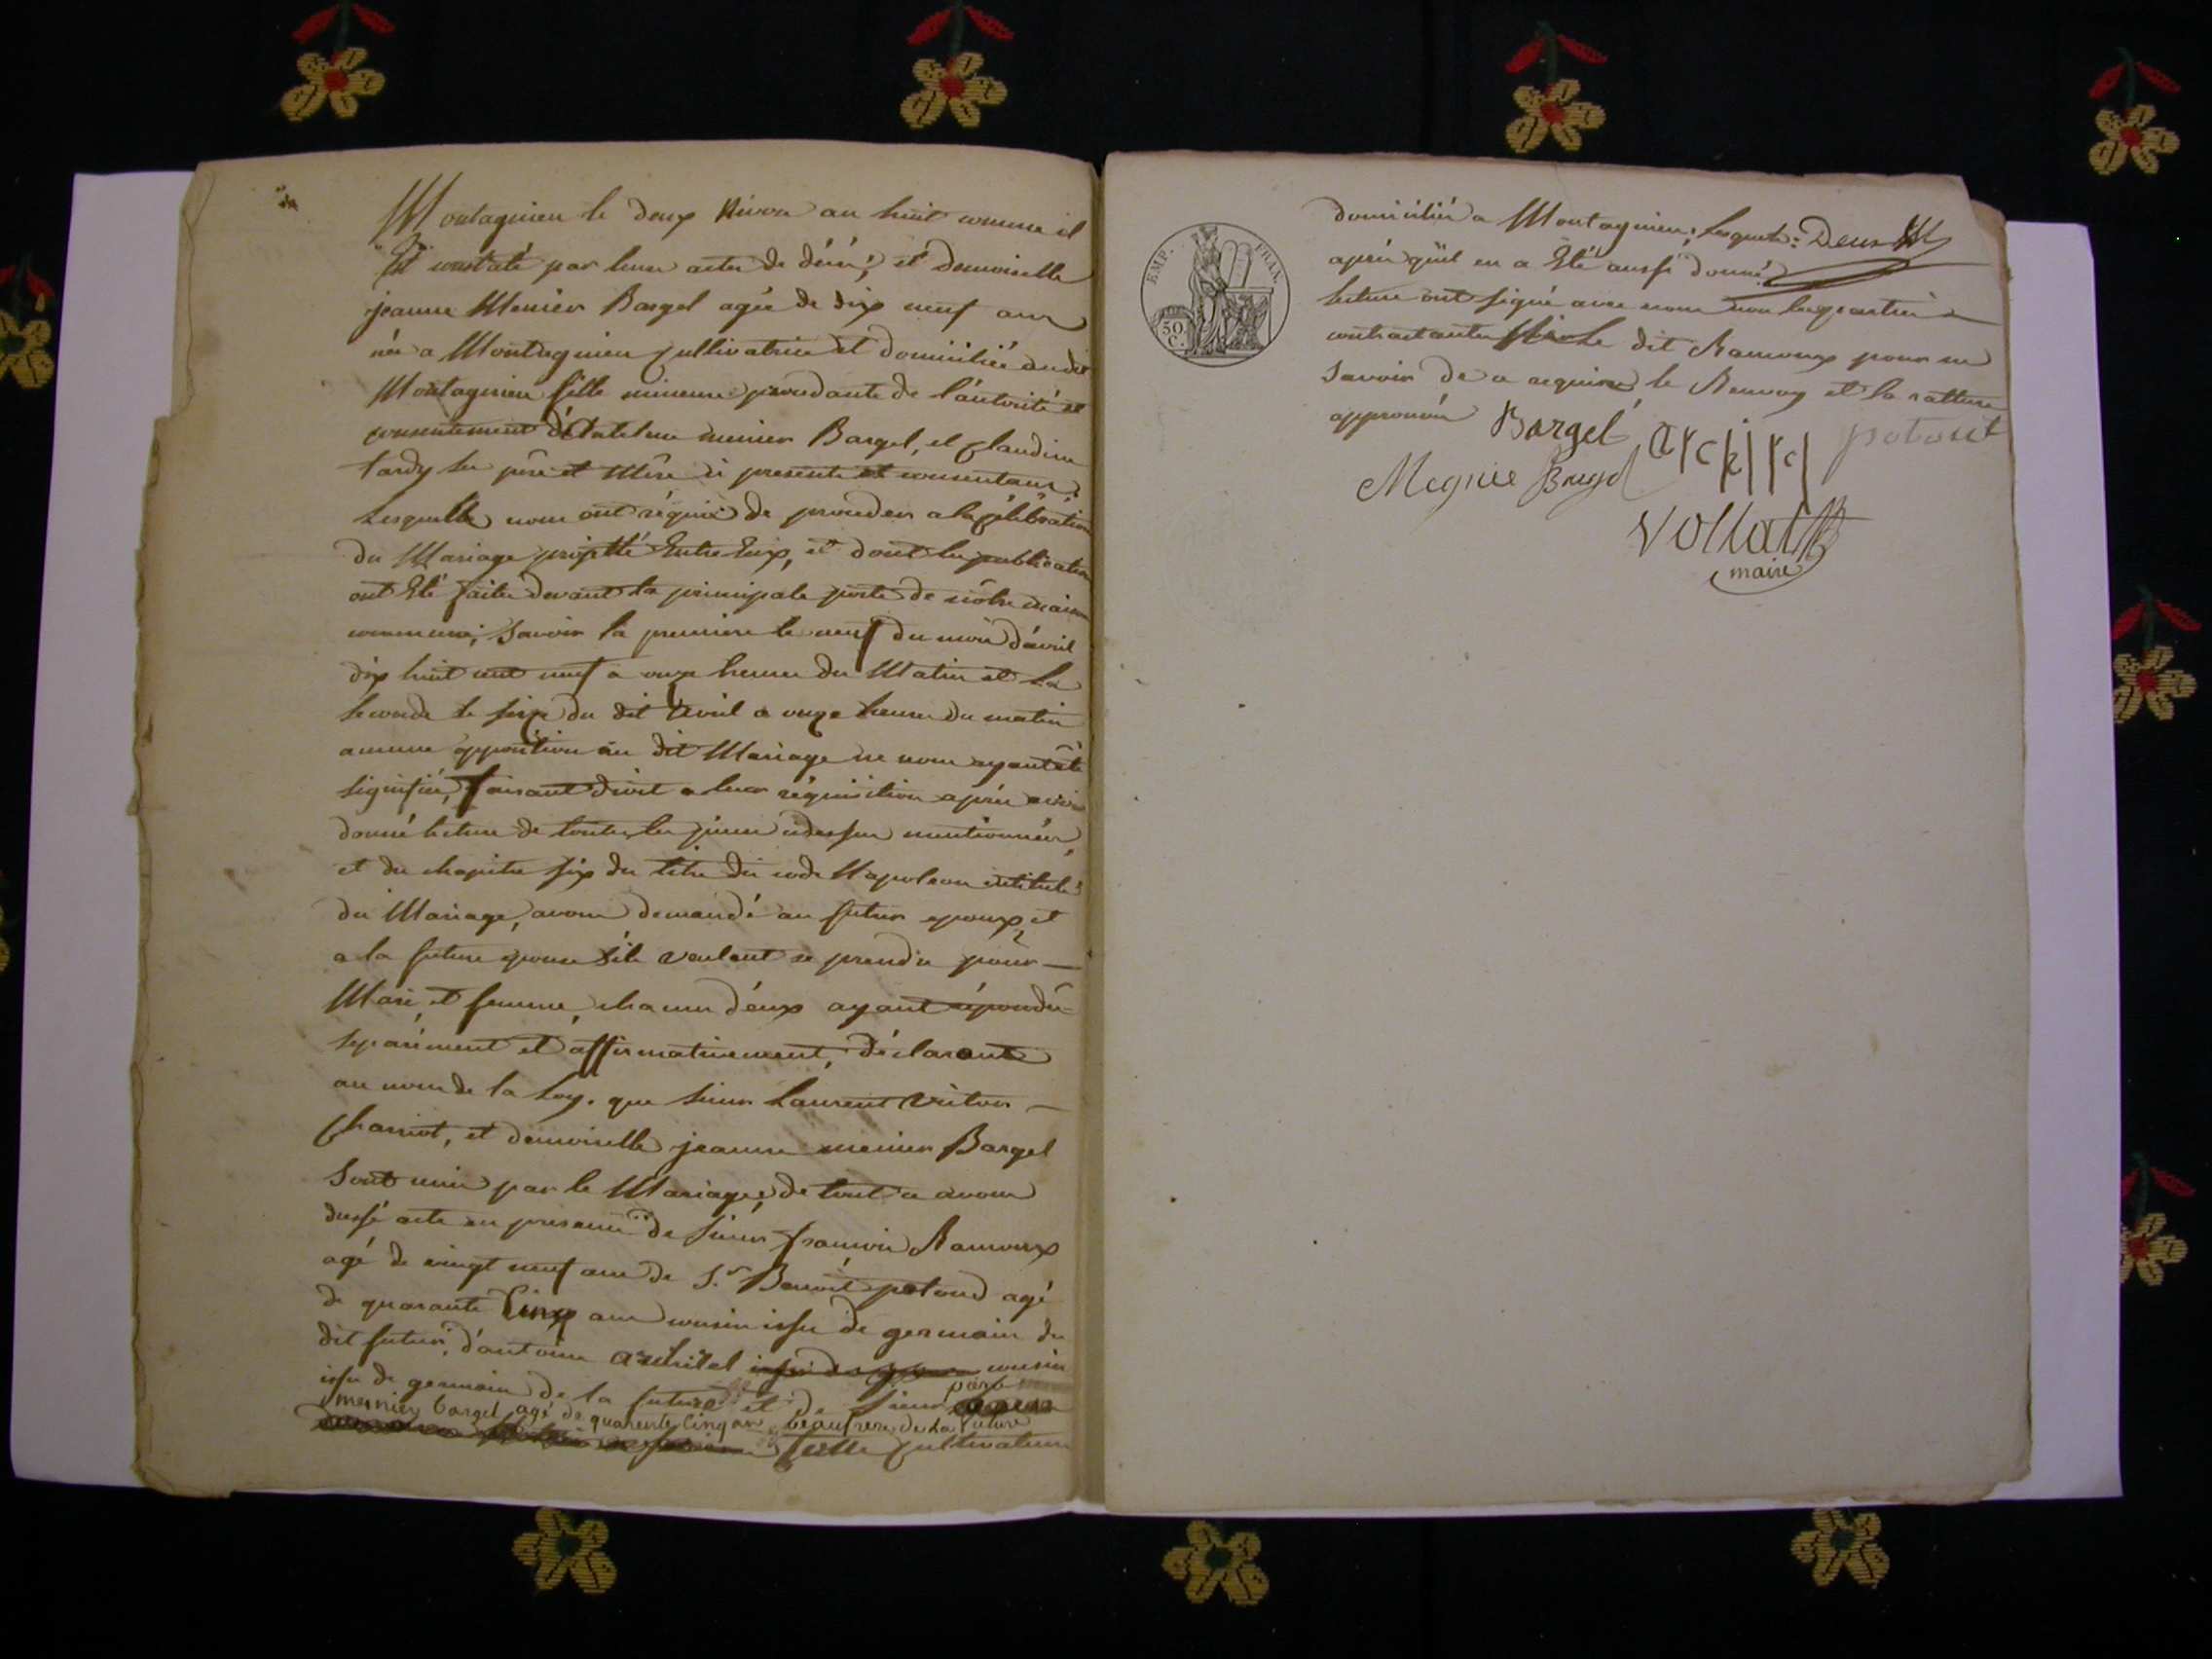 Montagnieu le deux Nivos an huit comme il
Est constaté par leurs actes de décés; et demoiselle
jeanne Menier Bargel agée de dix neuf ans
née a Montagnieu Cultivatrice et domiciliée audit
Montagnieu fille mineure procedante de l'autorité et
consentement d'Antelme menier Bargel, et Claudine
tardy ses père et Mère ci presents et consentans;
Lesquelles nous ont réquis de proceder a la Célébration
du Mariage projetté Entre Eux, et dont les publications
ont Eté faites devant la principale porte de nôtre maison
commune; Savoir la premiere le neuf du mois d'avril
dix huit cent neuf a onze heures du Matin et la
Seconde le seize du dit Avril a onze heures du matin
aucune opposition au dit Mariage ne nous ayant été
signifiée, faisant droit a leur réquisition après avoir
donné lecture de toutes les pieces cidessus mentionnées,
et du chapitre six du titre du code Napoleon intitulé
du Mariage, avons demandé au futur epoux, et
a la future epouse s'ils veulent se prendre pour
Mari, et femme, chacun d'eux ayant répondu
Separément et affirmativement, déclarons
au nom de la Loy. que Sieur Laurent
Charriot, et demoiselle jeanne menier Bargel
Sont unis par le Mariage; de tout ce avons
dressé acte en presence de Sieur francois Ramoux
agé de vingt neuf ans de S.r Benoit polond agé
de quarante Cinq ans cousin issu de germain du
dit futur, d'antoine cousin
issu de germain de la future et de Sieur
menier bargel agé de quarente Cinq ans beaufrere de La future
Cultivateurs
domiciliés a Montagnieu; Lesquels: Deux
après qu'il en a Eté aussi donné
lecture ont signé avec nous non les parties
contractantes le dit Ramoux pour ne
Savoir de ce requis, le Renvoy et la rature
approuvés Bargel
Bargel
Vollat
maire
EMP. FRAN.
50 C.